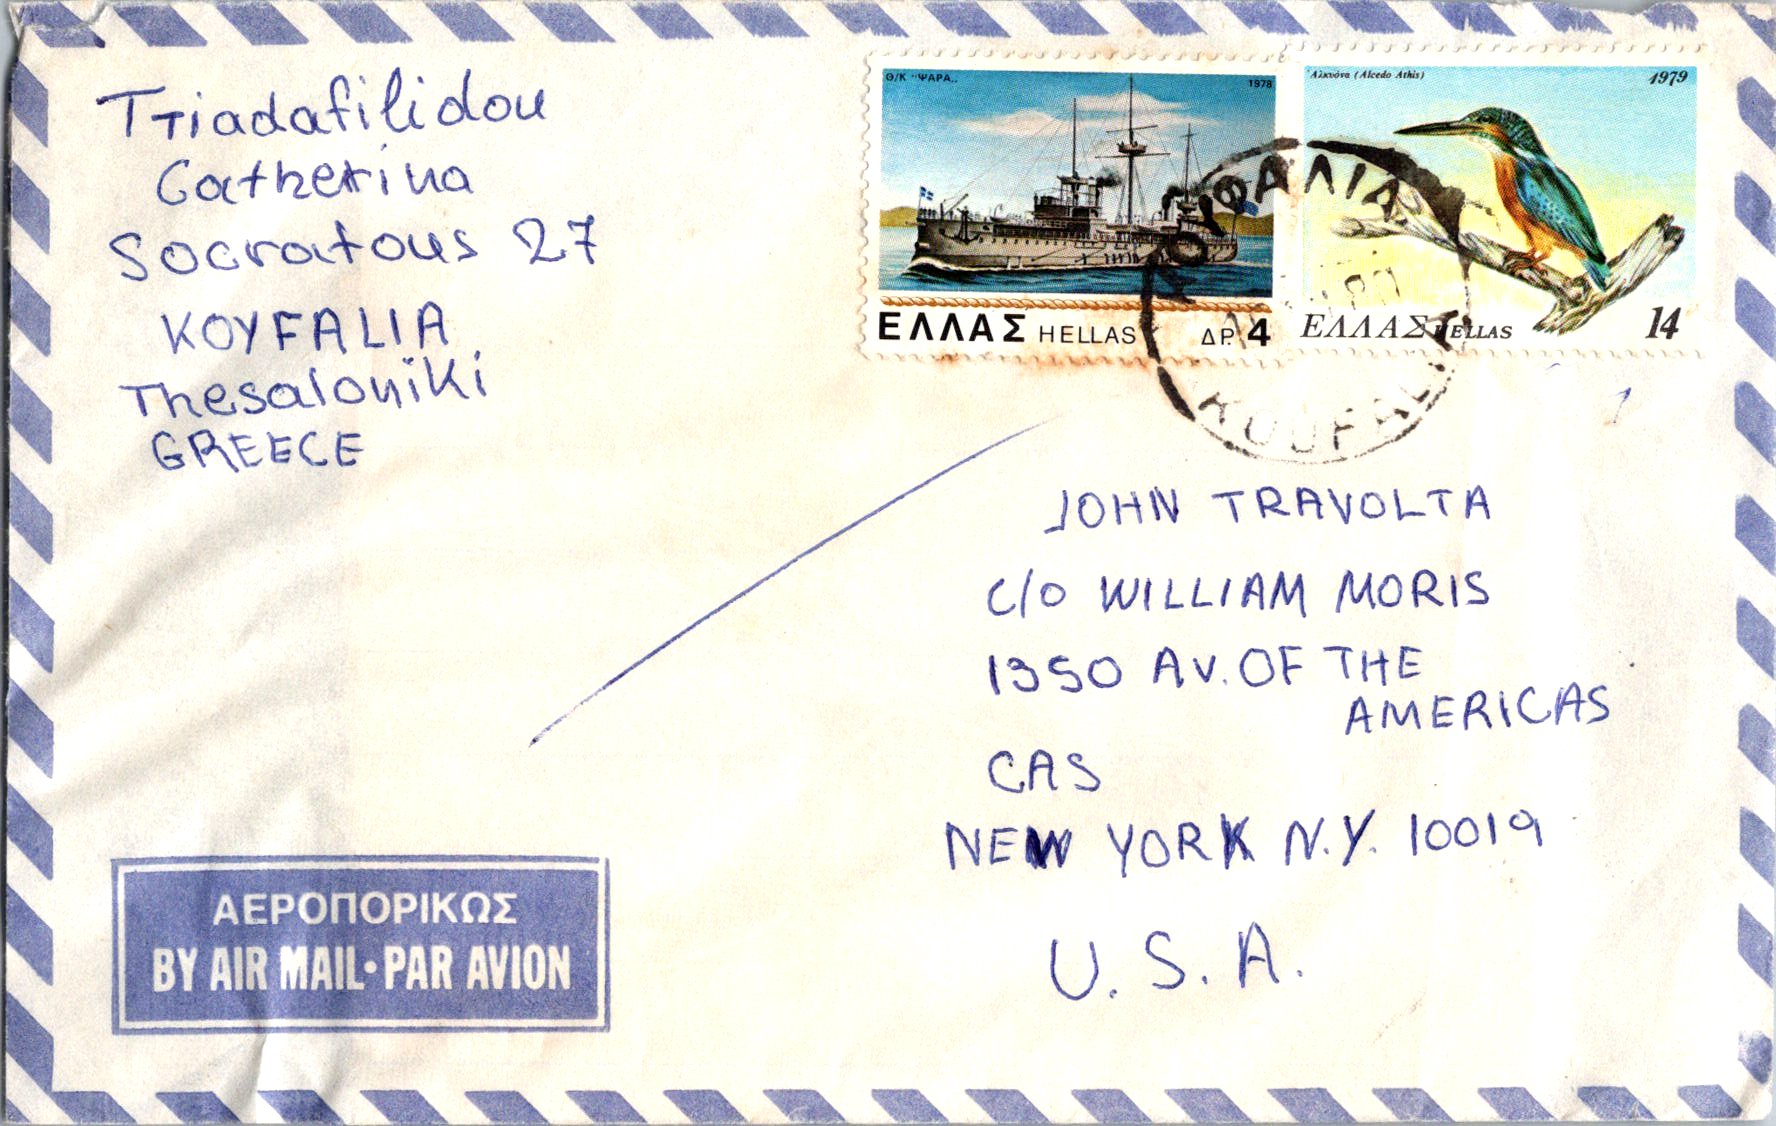 Triadafilidou
Catherina
Socratous 27
KOYFALIA
Thesaloniki
GREECE
Θ/Κ "ΨΑΡΑ"
1978
ΕΛΛΑΣ HELLAS ΔΡ. 4
Αλκυόνα (Alcedo Athis)
1979
ΕΛΛΑΣ HELLAS 14
KOUFALIA
JOHN TRAVOLTA
C/O WILLIAM MORIS
1350 AV. OF THE
AMERICAS
CAS
NEW YORK N.Y. 10019
U.S.A.
ΑΕΡΟΠΟΡΙΚΩΣ
BY AIR MAIL·PAR AVION